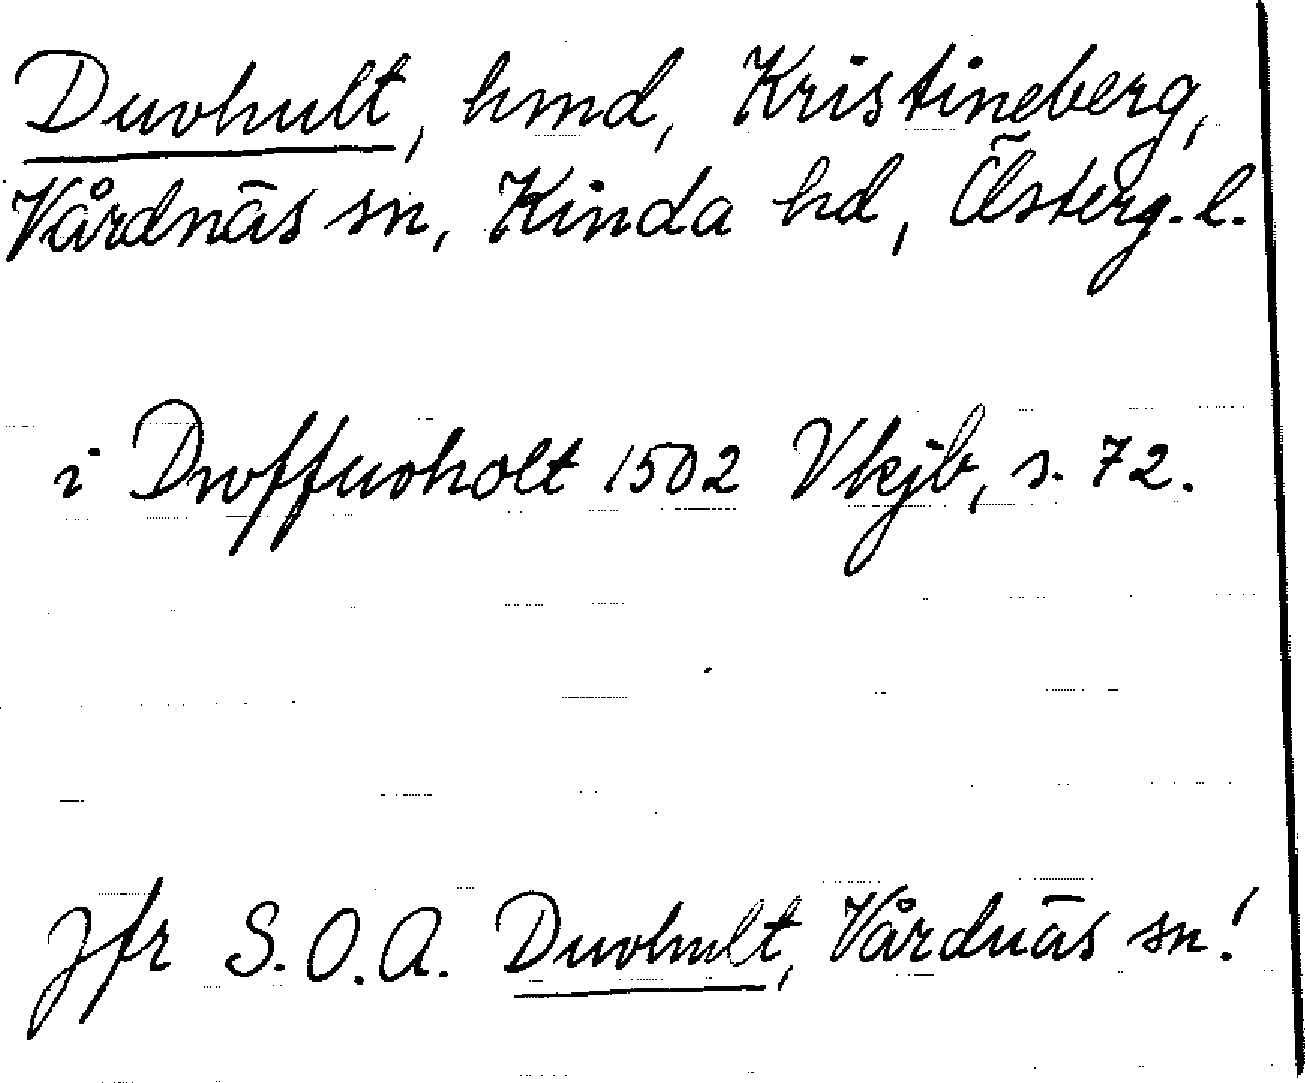 Duvhult, hmd, Kristineberg,
Vårdnäs sn, Kinda hd, Österg. l.
i Dwffwoholt 1502 Vkjb, s. 72.
Jfr S.O.A. Duvhult, Vårdnäs sn!